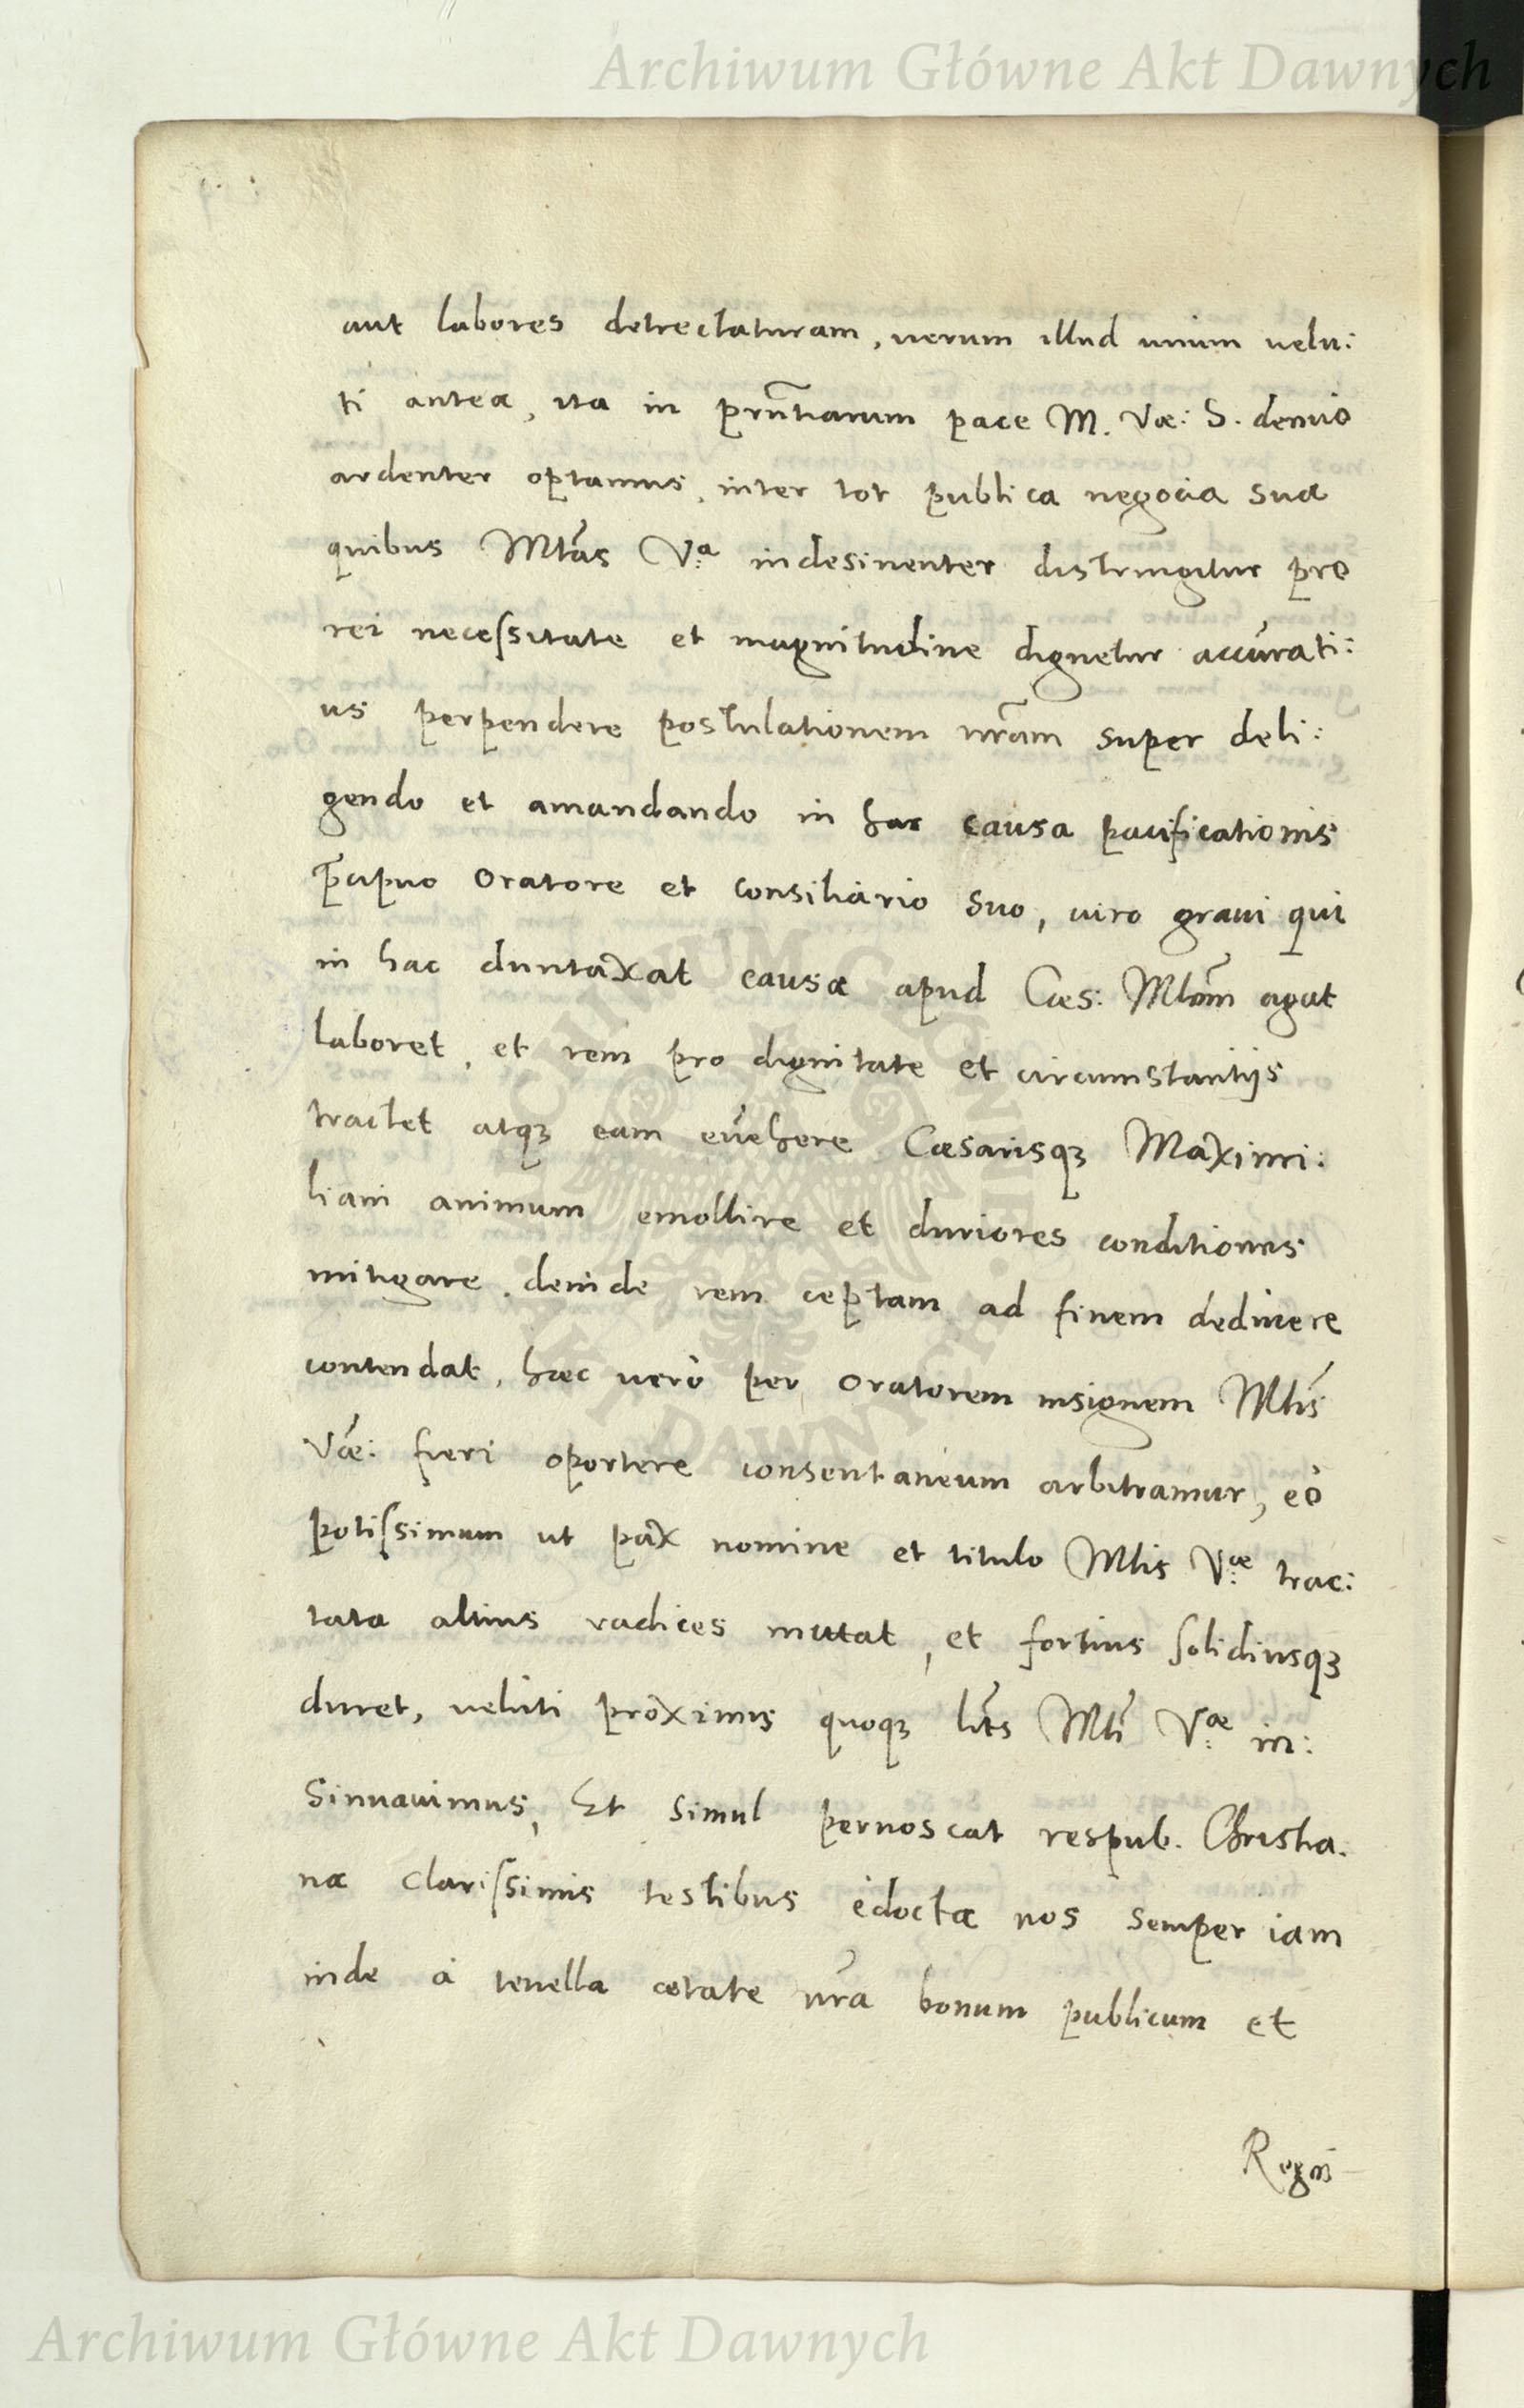 Archiwum Główne Akt Dawnych
aut labores detrectaturam, uerum illud unum uelu:
ti antea, ita in prñtiarum pace M. Væ: S. denuo
ardenter optamus, inter tot publica negocia sua
quibus Mtas Vª indesinenter distringitur pro
rei neceſsitate et magnitudine dignetur accurati:
us perpendere postulationem nr̃am super deli:
gendo et amandando in hac causa pacificationis
p̄cipuo Oratore et Consiliario suo, uiro graui qui
in hac duntaxat causa apud Cæs: Mtem agat
laboret, et rem pro dignitate et circumstantijs
tractet atqꝫ eam euehere Cæsarisqꝫ Maximi:
liani animum emollire et duriores conditiones
mitigare, deinde rem ceptam ad finem deducere
contendat, hæc uerò per Oratorem insignem Mtis
Væ: fieri oportere consentaneum arbitramur, eò
potiſsimum ut pax nomine et titulo Mtis Væ trac:
tata altius radices mittat, et fortius ſolidiusqꝫ
duret, ueluti proximis quoqꝫ lr̃is Mti Væ in:
sinuauimus, Et simul pernoscat respub. Christia.
na clariſsimis testibus edocta nos semper iam
inde à tenella ætate nr̃a bonum publicum et
Archiwum Główne Akt Dawnych